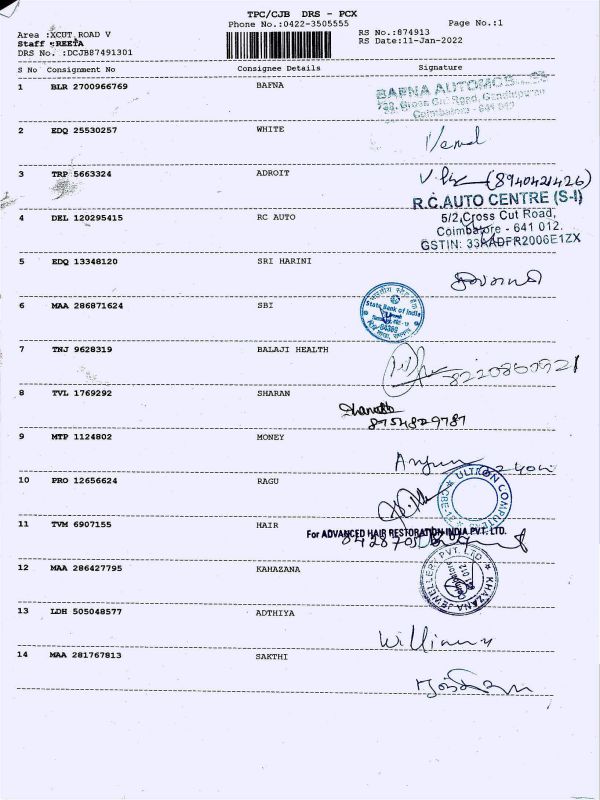 TPC/CJB DRS - PCX
Phone No.:0422-3505555
Page No.:1
Area :XCUT ROAD V
Staff :REETA
DRS No. :DCJB87491301
RS No.:874913
RS Date:11-Jan-2022
S No Consignment No Consignee Details Signature
1 BLR 2700966769 BAFNA
BAFNA AUTOMOBILES
Cross Cut Road, Gandhipuram
Coimbatore - 641 012
2 EDQ 25530257 WHITE
3 TRP 5663324 ADROIT
(8940421426)
R.C.AUTO CENTRE (S-I)
5/2,Cross Cut Road,
Coimbatore - 641 012.
GSTIN: 33AADFR2006E1ZX
4 DEL 120295415 RC AUTO
5 EDQ 13348120 SRI HARINI
6 MAA 286871624 SBI
State Bank of India
7 TNJ 9628319 BALAJI HEALTH
8 TVL 1769292 SHARAN
8754829787
9 MTP 1124802 MONEY
10 PRO 12656624 RAGU
ULTRON COMPUTE
11 TVM 6907155 HAIR
For ADVANCED HAIR RESTORATION INDIA PVT. LTD.
12 MAA 286427795 KAHAZANA
KHAZANA JEWELLERY PVT. LTD
13 LDH 505048577 ADTHIYA
14 MAA 281767813 SAKTHI